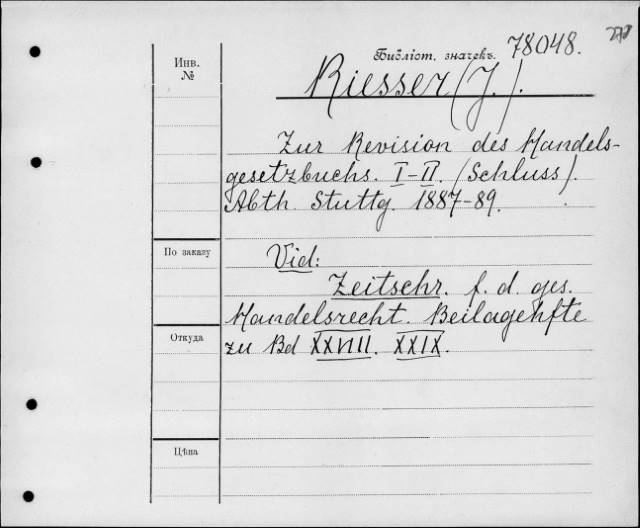 Библіот. значекъ. 78048.
Инв.
№
Riesser (J.).
Zur Revision des Handels-
gesetzbuchs. I-II. (Schluss).
Abth. Stuttg. 1887-89.
По заказу
Vid:
Zeitschr. f. d. ges.
Handelsrecht. Beilagehfte
Откуда
zu Bd XXVIII. XXIX.
Цѣна